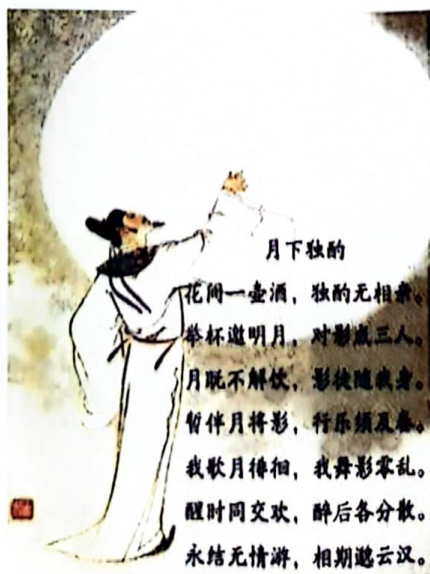 月下独酌
花间一壶酒，独酌无相亲。
举杯邀明月，对影成三人。
月既不解饮，影徒随我身。
暂伴月将影，行乐须及春。
我歌月徘徊，我舞影零乱。
醒时同交欢，醉后各分散。
永结无情游，相期邈云汉。